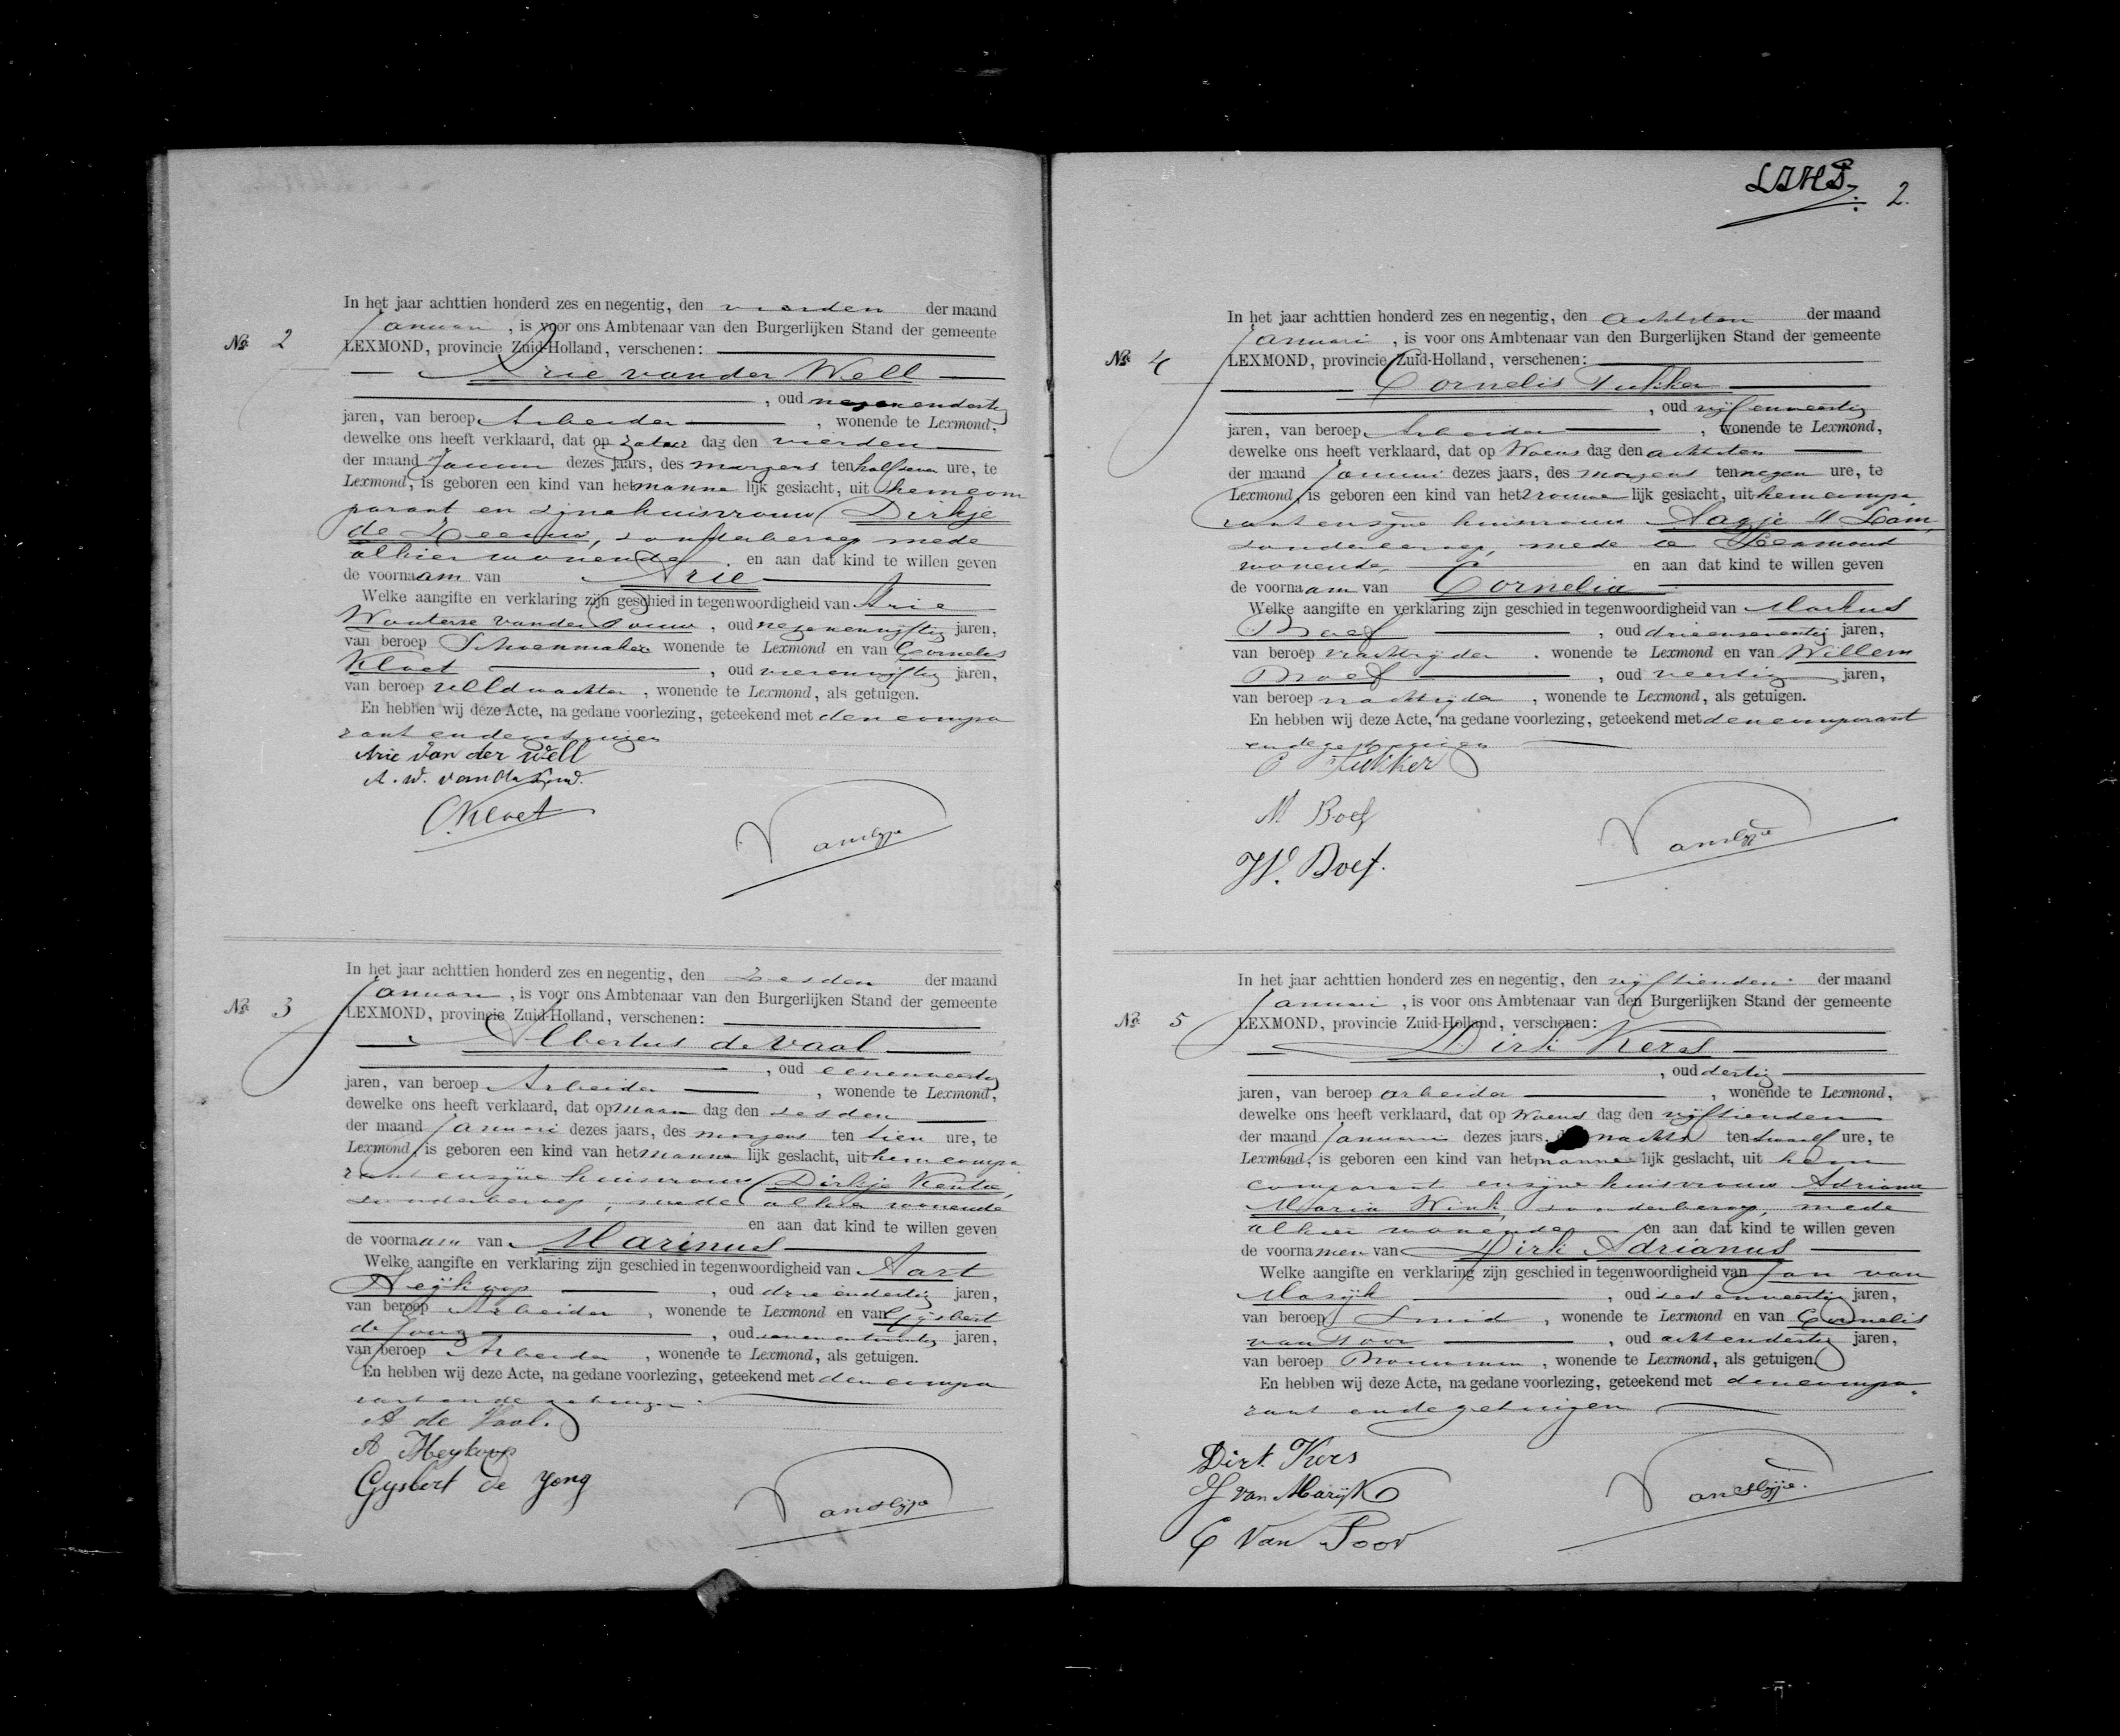 Nº 2
In het jaar achttien honderd zes en negentig, den vierden der maand
Januari, is voor ons Ambtenaar van den Burgerlijken Stand der gemeente
LEXMOND, provincie Zuid-Holland, verschenen:
Arie van der Well
, oud negenendertig
jaren, van beroep Arbeider, wonende te Lexmond,
dewelke ons heeft verklaard, dat op Zatur dag den vierden
der maand Januari dezes jaars, des morgens ten half zeven ure, te
Lexmond, is geboren een kind van het manne lijk geslacht, uit hem com
parant en zijne huisvrouw Dirkje
de Leeuw, zonder beroep mede
alhier wonende en aan dat kind te willen geven
de voornaam van Arie
Welke aangifte en verklaring zijn geschied in tegenwoordigheid van Arie
Wouterse van der Pouw, oud negenenvijftig jaren,
van beroep Schoenmaker wonende te Lexmond en van Cornelis
Kloet, oud vierenvijftig jaren,
van beroep veldwachter, wonende te Lexmond, als getuigen.
En hebben wij deze Acte, na gedane voorlezing, geteekend met den compa
rant en de getuigen
Arie van der Well
A. W. van der
C. Kloet
Van Slijpe
Nº 3
In het jaar achttien honderd zes en negentig, den zesden der maand
Januari, is voor ons Ambtenaar van den Burgerlijken Stand der gemeente
LEXMOND, provincie Zuid-Holland, verschenen:
Albertus de Vaal
, oud eenenveertig
jaren, van beroep Arbeider, wonende te Lexmond,
dewelke ons heeft verklaard, dat op Maan dag den zesden
der maand Januari dezes jaars, des morgens ten tien ure, te
Lexmond, is geboren een kind van het manne lijk geslacht, uit hem compa
rant en zijne huisvrouw Dirkje
zonder beroep, mede alhier wonende
en aan dat kind te willen geven
de voornaam van Marinus
Welke aangifte en verklaring zijn geschied in tegenwoordigheid van Aart
Heijkoop, oud drieendertig jaren,
van beroep Arbeider, wonende te Lexmond en van Gijsbert
de Jong, oud zevenentwintig jaren,
van beroep Arbeider, wonende te Lexmond, als getuigen.
En hebben wij deze Acte, na gedane voorlezing, geteekend met den compa
rant en de getuigen.
A de Vaal.
A Heykoop
Gysbert de Jong
Van Slijpe
2.
Nº 4
In het jaar achttien honderd zes en negentig, den achtsten der maand
Januari, is voor ons Ambtenaar van den Burgerlijken Stand der gemeente
LEXMOND, provincie Zuid-Holland, verschenen:
Cornelis Tukker
, oud vijfenveertig
jaren, van beroep Arbeider, wonende te Lexmond,
dewelke ons heeft verklaard, dat op Woens dag den achtsten
der maand Januari dezes jaars, des morgens ten negen ure, te
Lexmond, is geboren een kind van het vrouwe lijk geslacht, uit hem compa
rant en zijne huisvrouw Aagje 't Lam,
zonder beroep, mede te Lexmond
wonende, en aan dat kind te willen geven
de voornaam van Cornelia
Welke aangifte en verklaring zijn geschied in tegenwoordigheid van Markus
Boef, oud drieenzeventig jaren,
van beroep vrachtrijder, wonende te Lexmond en van Willem
Boef, oud veertig jaren,
van beroep vrachtrijder, wonende te Lexmond, als getuigen.
En hebben wij deze Acte, na gedane voorlezing, geteekend met den comparant
en de getuigen
C Tukker
M Boef
W. Boef.
Van Slijpe
Nº 5
In het jaar achttien honderd zes en negentig, den vijftienden der maand
Januari, is voor ons Ambtenaar van den Burgerlijken Stand der gemeente
LEXMOND, provincie Zuid-Holland, verschenen:
Dirk Kers
, oud dertig
jaren, van beroep arbeider, wonende te Lexmond,
dewelke ons heeft verklaard, dat op Woens dag den vijftienden
der maand Januari dezes jaars, nachts ten twaalf ure, te
Lexmond, is geboren een kind van het manne lijk geslacht, uit hem
comparant en zijne huisvrouw Adriana
Maria Wink, zonder beroep, mede
alhier wonende, en aan dat kind te willen geven
de voornamen van Dirk Adrianus
Welke aangifte en verklaring zijn geschied in tegenwoordigheid van Jan van
Marijk, oud zesenveertig jaren,
van beroep Smid, wonende te Lexmond en van Cornelis
van Toor, oud achtendertig jaren,
van beroep Bouwman, wonende te Lexmond, als getuigen.
En hebben wij deze Acte, na gedane voorlezing, geteekend met den compa
rant en de getuigen
Dirk Kers
J van Marijk
C van Toor
Van Slijpe.